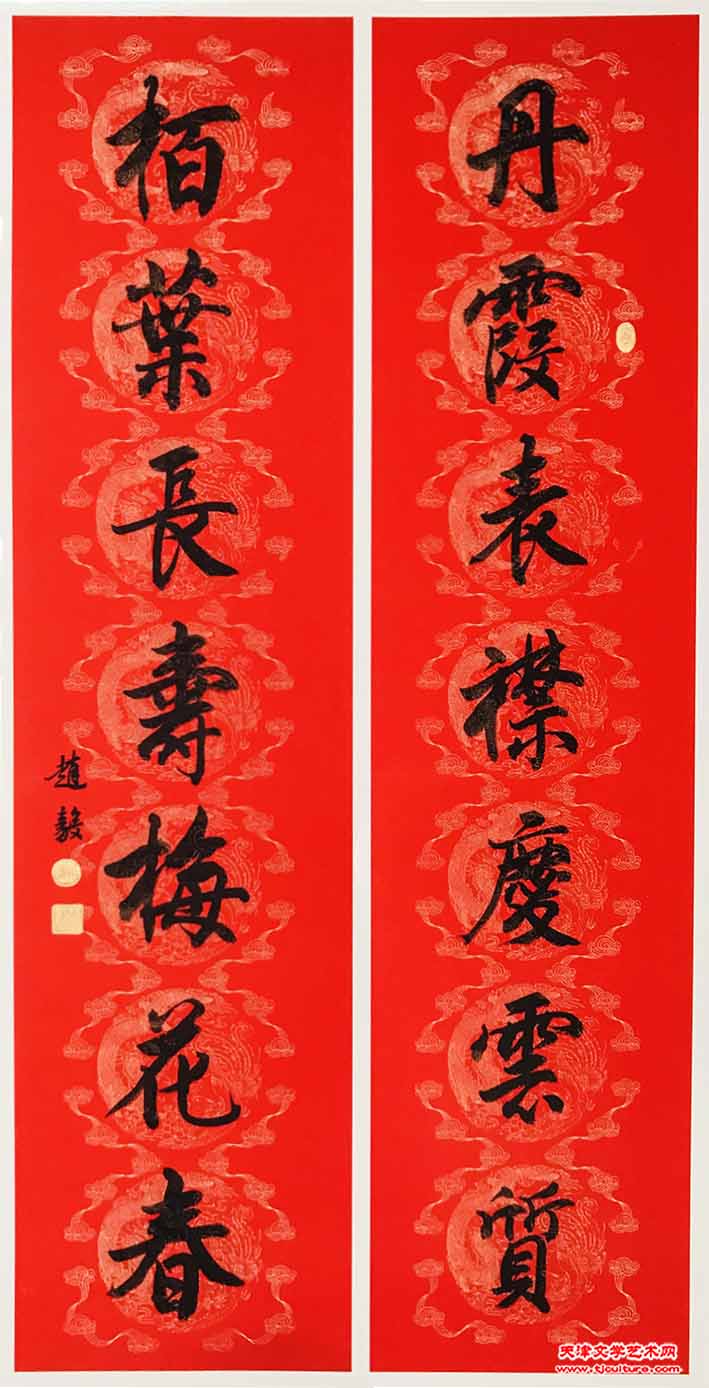 丹霞表襟慶雲質
栢葉長壽梅花春
趙毅
天津文学艺术网
www.tjculture.com